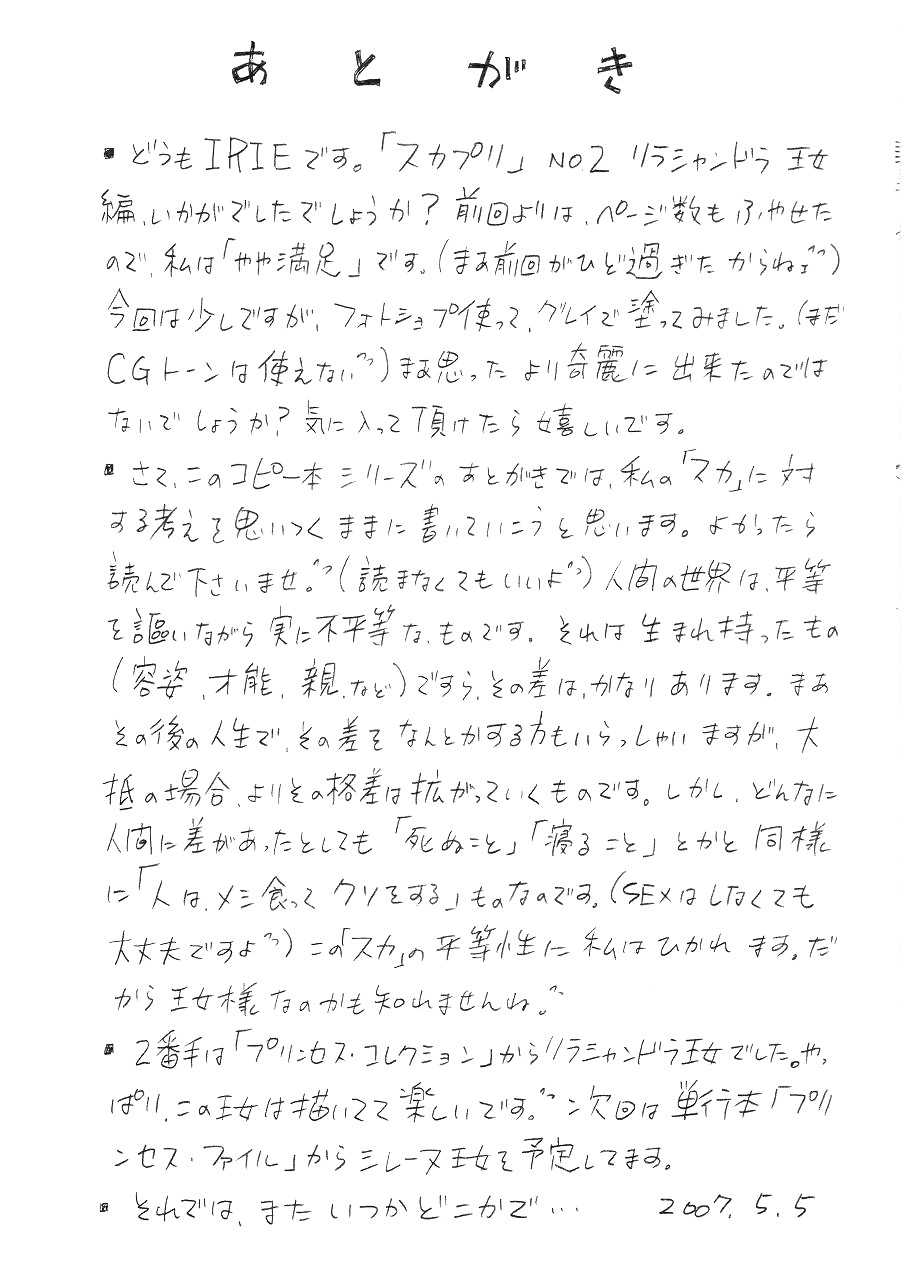 あとがき
■どうもIRIEです。「スカプリ」NO.2 リラシャンドラ王女
編、いかがでしたでしょうか？前回よりは、ページ数もふやせた
ので、私は「やや満足」です。(まあ前回がひど過ぎたからねェ^^)
今回は少しですが、フォトショプ使って、グレイで塗ってみました。(まだ
CGトーンは使えない^^)まあ思ったより奇麗に出来たのでは
ないでしょうか？気に入って頂けたら嬉しいです。
■さて、このコピー本シリーズのあとがきでは、私の「スカ」に対
する考えを思いつくままに書いていこうと思います。よかったら
読んで下さいませ。^^(読まなくてもいいよ^^)人間の世界は、平等
を謳いながら実に不平等な、ものです。それは生まれ持ったもの
(容姿、才能、親、など)ですら、その差は、かなりあります。まあ
その後の人生で、その差をなんとかする方もいらっしゃいますが、大
抵の場合、よりその格差は拡がっていくものです。しかし、どんなに
人間に差があったとしても「死ぬこと」「寝ること」とかと同様
に「人は、メシ食ってクソをする」ものなのです。(SEXはしなくても
大丈夫ですよ^^)この「スカ」の平等性に私はひかれます。だ
から王女様なのかも知れませんね。^^
■2番手は「プリンセス・コレクション」からリラシャンドラ王女でした。やっ
ぱり、この王女は描いてて楽しいです。^^次回は単行本「プリ
ンセス・ファイル」からミレーヌ王女を予定してます。
■それでは、またいつかどこかで… 2007.5.5